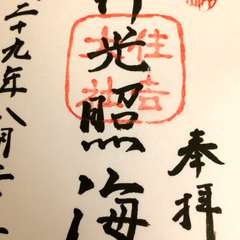 奉拝
光照海
住吉
十九年八月